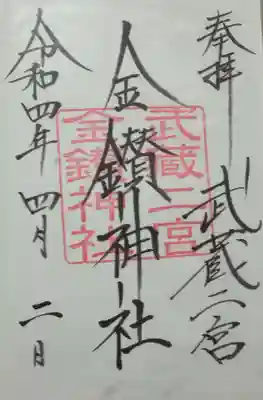 奉拝
武蔵二宮
金鑚神社
武蔵二宮
金鑚神社
令和四年 四月 二日